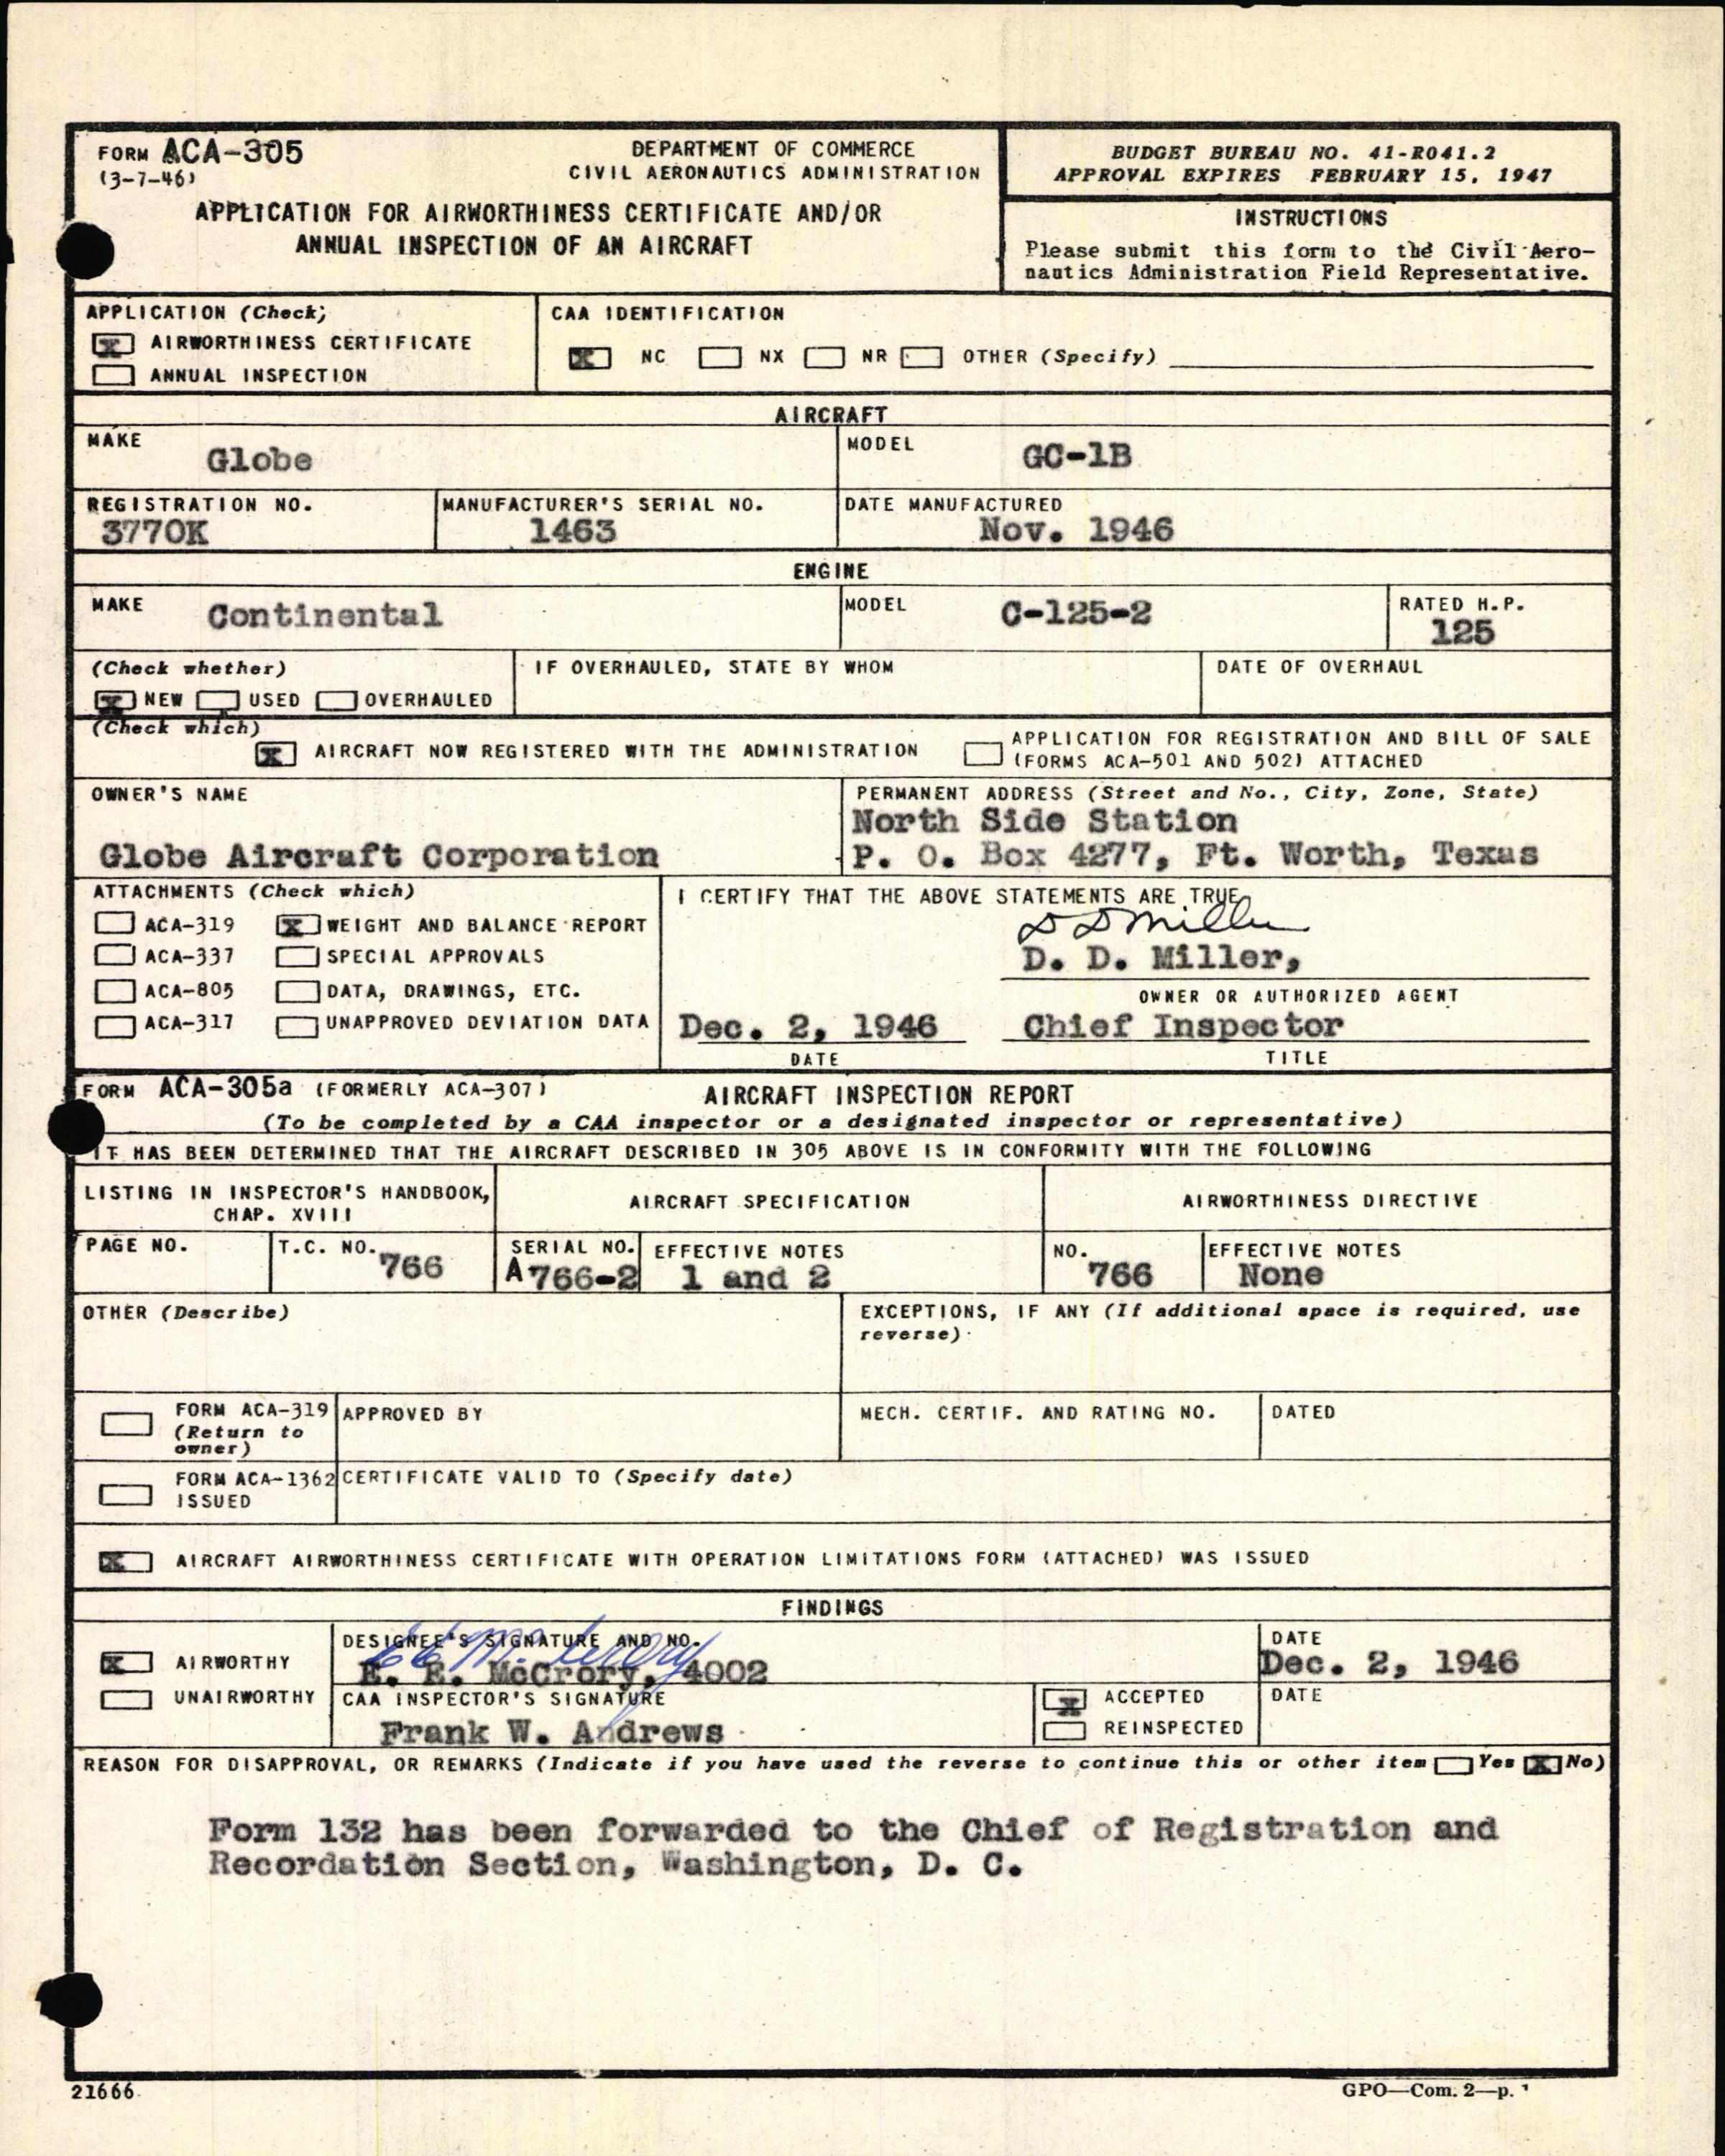 FORM ACA-305
(3-7-46)
DEPARTMENT OF COMMERCE
CIVIL AERONAUTICS ADMINISTRATION
APPLICATION FOR AIRWORTHINESS CERTIFICATE AND/OR
ANNUAL INSPECTION OF AN AIRCRAFT
BUDGET BUREAU NO. 41-R041.2
APPROVAL EXPIRES FEBRUARY 15, 1947
INSTRUCTIONS
Please submit this form to the Civil Aero-
nautics Administration Field Representative.
APPLICATION (Check)
X AIRWORTHINESS CERTIFICATE
ANNUAL INSPECTION
CAA IDENTIFICATION
X NC NX NR OTHER (Specify)
AIRCRAFT
MAKE
Globe
MODEL
GC-1B
REGISTRATION NO.
3770K
MANUFACTURER'S SERIAL NO.
1463
DATE MANUFACTURED
Nov. 1946
ENGINE
MAKE
Continental
MODEL
C-125-2
RATED H.P.
125
(Check whether)
X NEW USED OVERHAULED
IF OVERHAULED, STATE BY WHOM
DATE OF OVERHAUL
(Check which)
X AIRCRAFT NOW REGISTERED WITH THE ADMINISTRATION
APPLICATION FOR REGISTRATION AND BILL OF SALE
(FORMS ACA-501 AND 502) ATTACHED
OWNER'S NAME
Globe Aircraft Corporation
PERMANENT ADDRESS (Street and No., City, Zone, State)
North Side Station
P. O. Box 4277, Ft. Worth, Texas
ATTACHMENTS (Check which)
ACA-319 X WEIGHT AND BALANCE REPORT
ACA-337 SPECIAL APPROVALS
ACA-805 DATA, DRAWINGS, ETC.
ACA-317 UNAPPROVED DEVIATION DATA
I CERTIFY THAT THE ABOVE STATEMENTS ARE TRUE
D D Miller
D. D. Miller,
OWNER OR AUTHORIZED AGENT
Dec. 2, 1946 Chief Inspector
DATE TITLE
FORM ACA-305a (FORMERLY ACA-307) AIRCRAFT INSPECTION REPORT
(To be completed by a CAA inspector or a designated inspector or representative)
IT HAS BEEN DETERMINED THAT THE AIRCRAFT DESCRIBED IN 305 ABOVE IS IN CONFORMITY WITH THE FOLLOWING
LISTING IN INSPECTOR'S HANDBOOK,
CHAP. XVIII
AIRCRAFT SPECIFICATION
AIRWORTHINESS DIRECTIVE
PAGE NO.
T.C. NO.
766
SERIAL NO.
A766-2
EFFECTIVE NOTES
1 and 2
NO.
766
EFFECTIVE NOTES
None
OTHER (Describe)
EXCEPTIONS, IF ANY (If additional space is required, use
reverse)
FORM ACA-319
(Return to
owner)
APPROVED BY
MECH. CERTIF. AND RATING NO.
DATED
FORM ACA-1362
ISSUED
CERTIFICATE VALID TO (Specify date)
X AIRCRAFT AIRWORTHINESS CERTIFICATE WITH OPERATION LIMITATIONS FORM (ATTACHED) WAS ISSUED
FINDINGS
X AIRWORTHY
UNAIRWORTHY
DESIGNEE'S SIGNATURE AND NO.
E E McCrory
E. E. McCrory, 4002
DATE
Dec. 2, 1946
CAA INSPECTOR'S SIGNATURE
Frank W. Andrews
X ACCEPTED
REINSPECTED
DATE
REASON FOR DISAPPROVAL, OR REMARKS (Indicate if you have used the reverse to continue this or other item Yes X No)
Form 132 has been forwarded to the Chief of Registration and
Recordation Section, Washington, D. C.
21666
GPO—Com. 2—p. 1